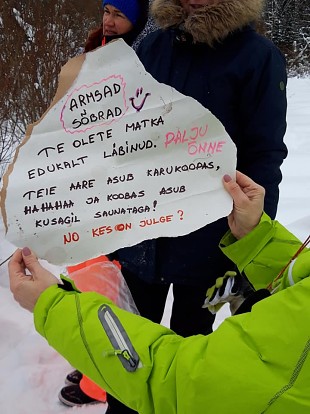 ARMSAD
SÕBRAD
TE OLETE MATKA
EDUKALT LÄBINUD. PALJU
ÕNNE
TEIE AARE ASUB KARUKOOPAS,
HAHAHAA JA KOOBAS ASUB
KUSAGIL SAUNATAGA!
NO KES ON JULGE?